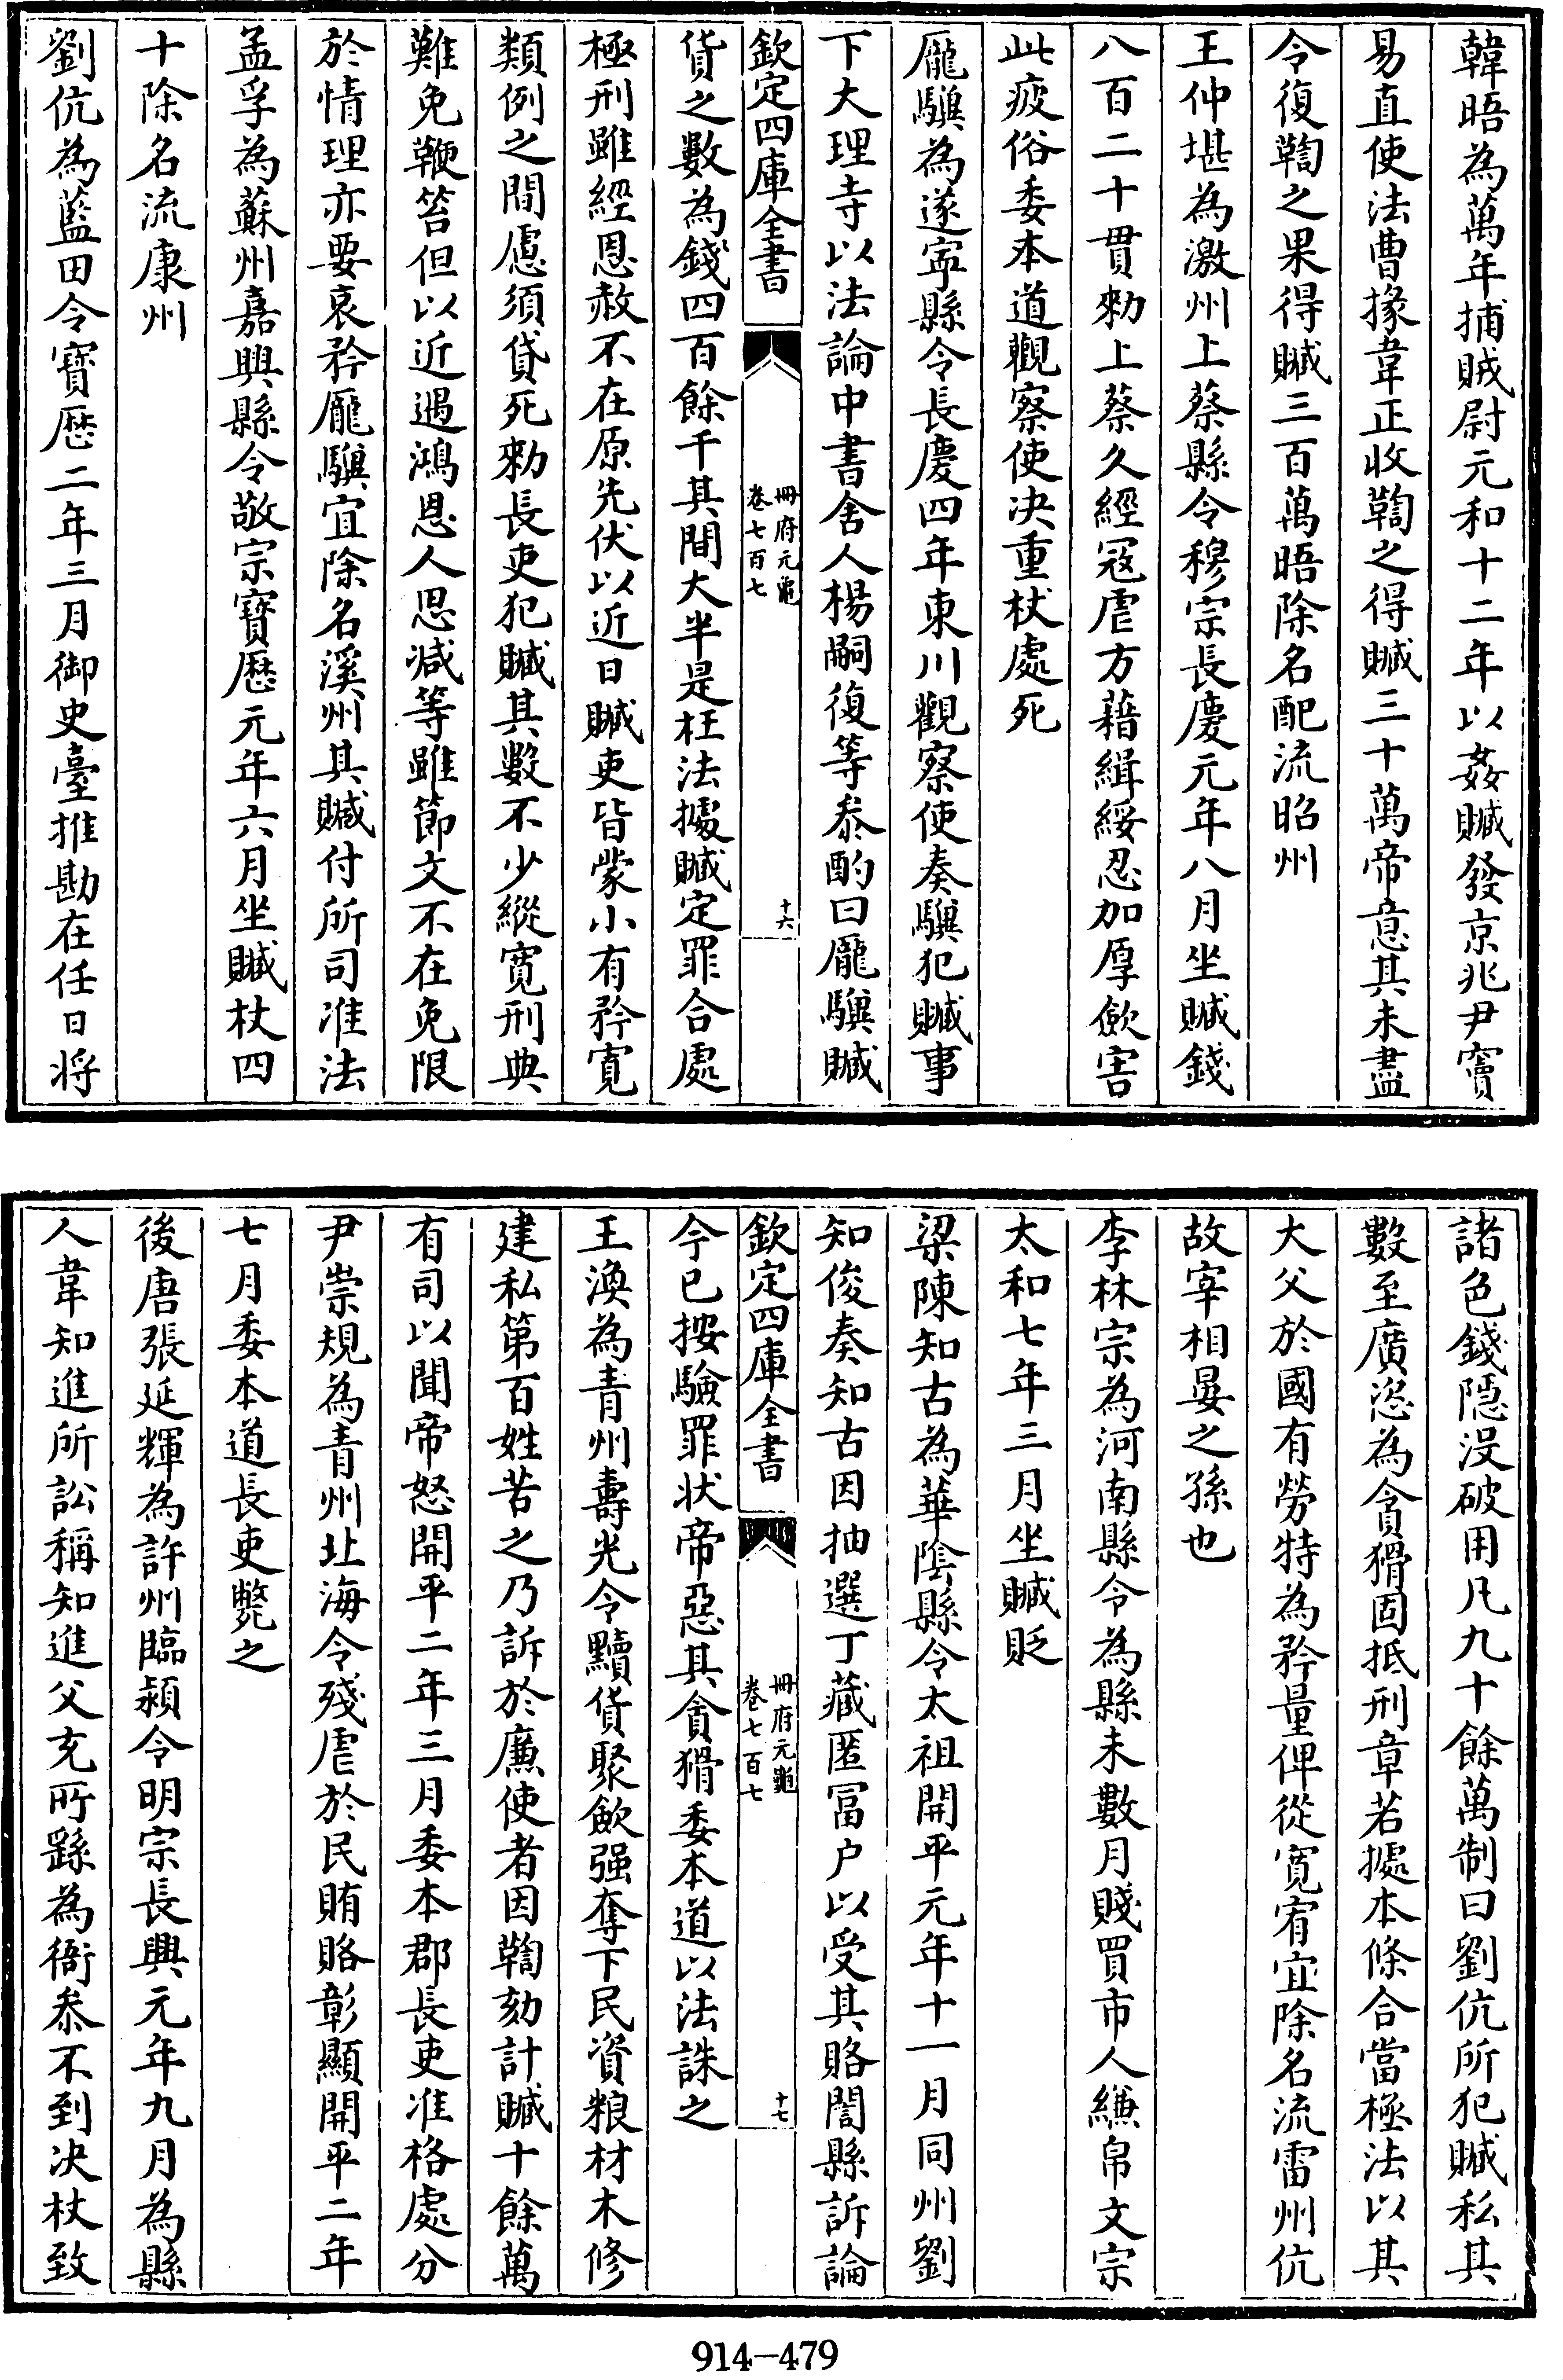 韓晤為萬年捕賊尉元和十二年以姦贓發京兆尹竇
易直使法曹掾韋正收鞫之得贓三十萬帝意其未盡
令復鞫之果得贓三百萬晤除名配流昭州
王仲堪為激州上蔡縣令穆宗長慶元年八月坐贓錢
八百二十貫勑上蔡久經冦虐方藉緝綏忍加厚歛害
此疲俗委本道觀察使决重杖處死
龎驥為遂寧縣令長慶四年東川觀察使奏驥犯贓事
下大理寺以法論中書舍人楊嗣復等叅酌曰龎驥贓
欽定四庫全書
冊府元龜
卷七百七
十六
貨之數為錢四百餘千其間大半是枉法據贓定罪合處
極刑雖經恩赦不在原免伏以近日贓吏皆蒙小有矜寛
類例之間慮須貸死勑長吏犯贓其數不少縱寛刑典
難免鞭笞但以近遇鴻恩人思减等雖節文不在免限
於情理亦要哀矜龎驥宜除名溪州其贓付所司准法
孟孚為蘇州嘉興縣令敬宗寶歴元年六月坐贓杖四
十除名流康州
劉伉為藍田令寶歴二年三月御史臺推勘在任日將
諸色錢隠没破用凡九十餘萬制曰劉伉所犯贓私其
數至廣恣為貪猾固抵刑章若據本條合當極法以其
大父於國有勞特為矜量俾從寛宥宜除名流雷州伉
故宰相晏之孫也
李林宗為河南縣令為縣未數月賤買市人縑帛文宗
太和七年三月坐贓貶
梁陳知古為華隂縣令太祖開平元年十一月同州劉
知俊奏知古因抽選丁藏匿冨户以受其賂誾縣訴論
欽定四庫全書
冊府元龜
卷七百七
十七
今已按驗罪状帝惡其貪猾委本道以法誅之
王渙為青州壽光令黷貨聚歛强奪下民資粮材木修
建私第百姓苦之乃訴於亷使者因鞫劾計贓十餘萬
有司以聞帝怒開平二年三月委本郡長吏准格處分
尹崇規為青州北海令殘虐於民賄賂彰顯開平二年
七月委本道長吏斃之
後唐張延輝為許州臨潁令明宗長興元年九月為縣
人韋知進所訟稱知進父充所繇為衙叅不到决杖致